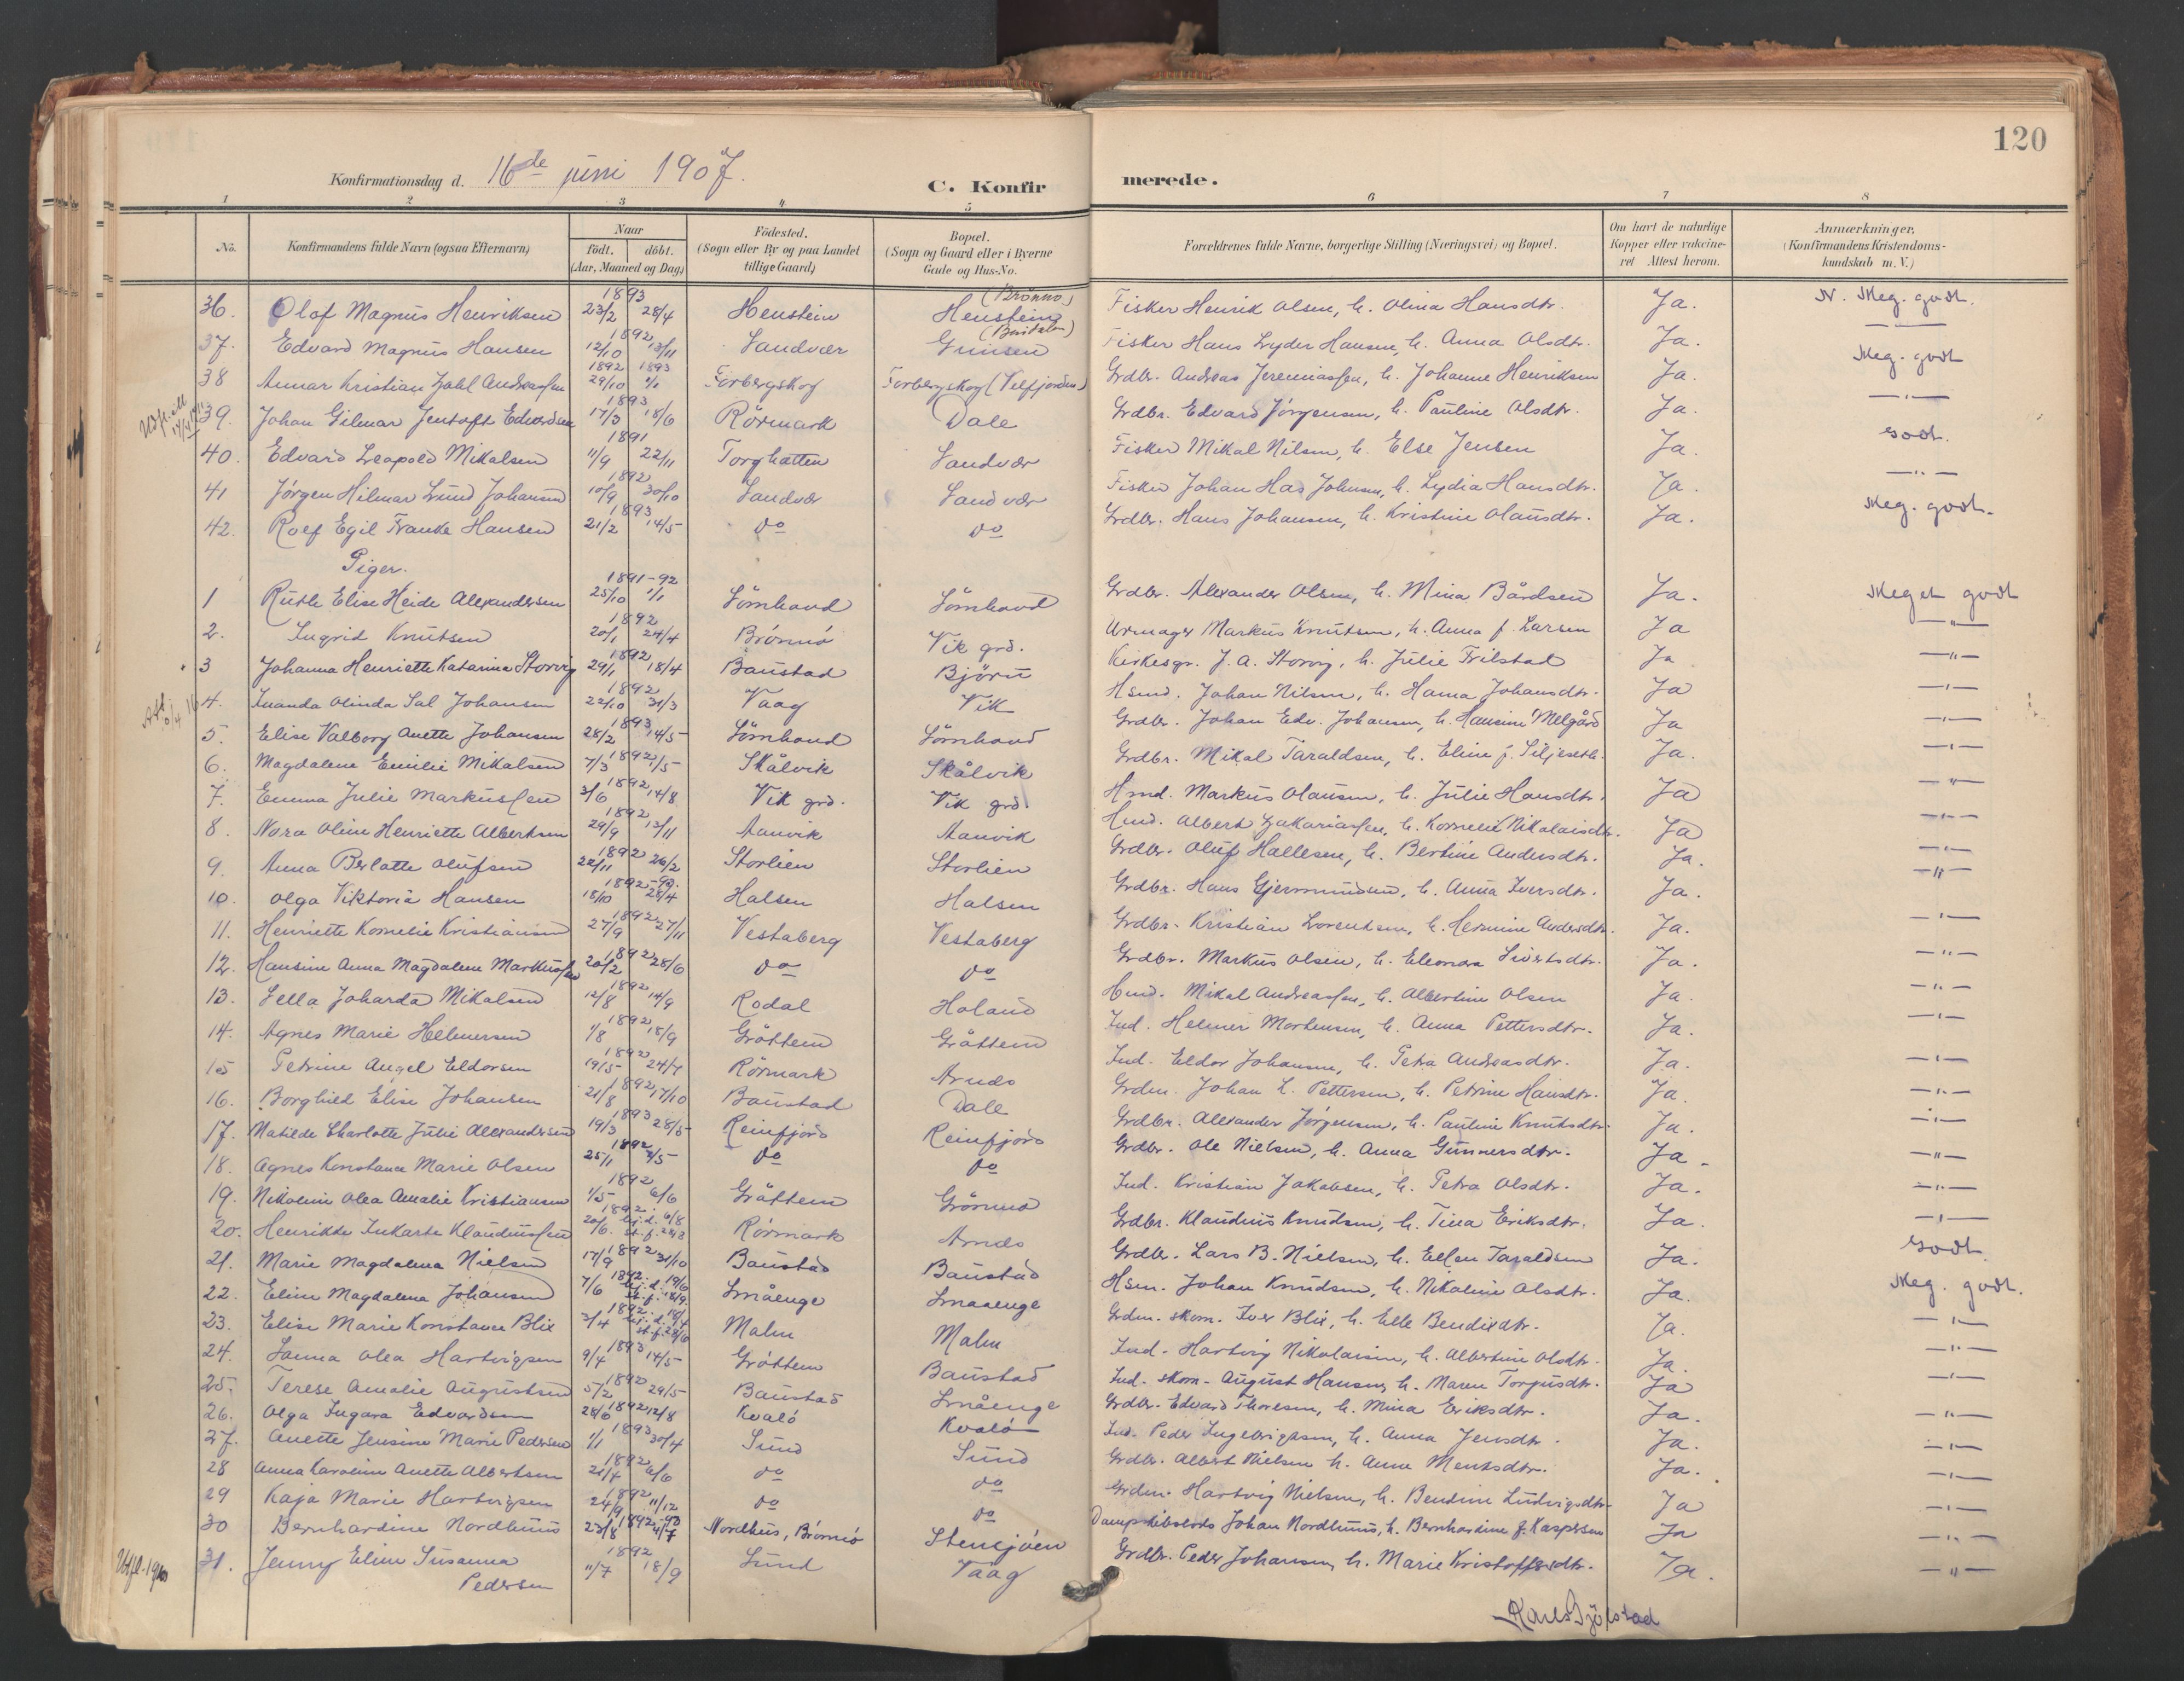 120
Konfirmationsdag d. 16de juni 1907.
C. Konfirmerede.
1 2 3 4 5 6 7 8
No. Konfirmandens fulde Navn (ogsaa Efternavn) Naar født. døbt. (Aar, Maaned og Dag) Fødested. (Sogn eller By og paa Landet tillige Gaard) Bopæl. (Sogn og Gaard eller i Byerne Gade og Hus-No. Forældrenes fulde Navne, borgerlige Stilling (Næringsvei) og Bopæl. Om havt de naturlige Kopper eller vakcineret Attest herom. Anmærkninger. (Konfirmandens Kristendomskundskab m. V.)
36. Olaf Magnus Henriksen 1893 23/2 28/4 Henstein Henstein (Brønnø) Fisker Henrik Olsen, h. Olina Hansdtr. Ja. N. Meg. godt.
37. Edvard Magnus Hansen 1892 12/10 13/11 Sandvær Fisker Hans Lyder Hansen, h. Anna Olsdtr. Ja. —"—
38 Annar Kristian Zahl Andreassen 1892 1893 29/10 1/1 Forbergskog Forbergskog (Velfjorden) Grdbr. Andreas Jeremiassen, h. Johanne Henriksen Ja. Meg. godt
39. Johan Gilmar Jentoft Edvardsen 1893 17/3 18/6 Rörmark Dale Grdbr. Edvard Jörgensen, h. Pauline Olsdtr. Ja. —"—
40. Edvard Leopold Mikalsen 1891 11/9 22/11 Torghatten Sandvær Fisker Mikal Nilsen, h. Else Jensen Ja. Godt.
41 Jørgen Hilmar Lund Johansen 1892 10/9 30/10 Sandvær Sandvær Fisker Johan Johnsen, h. Lydia Hansdtr. Ja. —"—
42. Rolf Egil Franke Hansen 1893 21/2 14/5 do do Grdbr. Hans Johansen, h. Kristine Olausdtr. Ja. Meg. godt.
Piger.
1 Ruth Elise Heide Alexandersen 1891-92 25/10 1/1 Sömhovd Sömhovd Grdbr. Alexander Olsen, h. Mina Bårdsen Ja. Meget godt
2. Ingrid Knutsen 1892 20/1 24/4 Brönnö Vik grd. Urmager Markus Knutsen, h. Anna f. Larsen Ja —"—
3 Johanna Henriette Katarina Storvig 1892 29/1 18/4 Baustad Björn Kirkesgr. J. A. Storvig, h. Julie Frilstad Ja —"—
4. Inanda Olinda Sal Johansen 1892 22/10 31/3 Vaag Vik Hsmd. Johan Nilsen, h. Hanna Johansdtr. Ja —"—
5. Elise Valborg Anette Johansen 1893 28/2 14/5 Sömhovd Sömhovd Grdbr. Johan Edv. Johansen, h. Hansine Melgård Ja —"—
6. Magdalene Emilie Mikalsen 1892 7/3 /5 Skålvik Skålvik Grdbr. Mikal Taraldsen, h. Eline f. Siljeseth. Ja. —"—
7. Emma Julie Markussen 1892 3/6 14/8 Vik grd. Vik grd. Hmd. Markus Olausen, h. Julie Hansdtr. Ja —"—
8. Nora Oline Henriette Albertsen 1892 29/9 13/11 Aanvik Aanvik Hmd. Albert Zakariassen, h. Kornelie Nikolaisdtr. Ja —"—
9. Anna Berlatte Olufsen 1892 22/11 26/2 Storlien Storlien Grdbr. Oluf Hallesen, h. Bertine Andersdtr. Ja. —"—
10. Olga Viktoria Hansen 1892-93. 18/10 28/4 Halsen Halsen Grdbr. Hans Gjermundsen, h. Anna Iversdtr. Ja. —"—
11. Henriette Kornelie Kristiansen 1892 27/9 27/11 Vestaberg Vestaberg Grdbr. Kristian Lorentsen, h. Hermine Andersdtr. Ja. —"—
12. Hansine Anna Magdalene Markussen 1892 20/2 28/6 do do Grdbr. Markus Olsen, h. Eleonora Sivertsdtr. Ja. —"—
13. Sella Joharda Mikalsen 1892 12/8 14/9 Rodal Holand Hmd. Mikal Andreassen, h. Albertine Olsen Ja. —"—
14. Agnes Marie Helmersen 1892 1/8 18/9 Gråttem Gråttem Ind. Helmer Mortensen, h. Anna Pettersdtr. Ja. —"—
15 Petrine Angel Eldorsen 1892 19/5 24/7 Rörmark Arnds Ind. Eldor Johansen, h. Petra Andreasdtr. Ja. —"—
16. Borghild Elise Johansen 1892 21/8 17/10 Baustad Dale Grdm. Johan L. Pettersen, h. Petrine Hansdtr. Ja. —"—
17. Matilde Charlotte Julie Alexandersen 1893 19/3 28/5 Reinfjord Reinfjord Grdbr. Alexander Jørgensen, h. Pauline Knutsdtr. Ja. —"—
18. Agnes Konstance Marie Olsen 1892 25/1 /5 do do Grdbr. Ole Nielsen, h. Anna Gunnersdtr. Ja. —"—
19. Nikoline Olea Amalie Kristiansen 1892 1/5 6/6 Gråttem Grönmo Ind. Kristian Jakobsen, h. Petra Olsdtr. Ja. —"—
20. Henrikke Inkarte Klaudiussen 1892 20/6. hj. d. 6/8 st. f. Rörmark Arnds Grdbr. Klaudius Knudsen, h. Tina Eriksdtr. Ja. —"—
21. Marie Magdalena Nielsen 1892 17/9 31/10 Baustad Baustad Grdbr. Lars B. Nielsen, h. Ellen Taraldsen Ja. Godt
22. Eline Magdalena Johansen 1892. 7/6 hj. d. 19/6 st. f. 18/9. Småenge Smaaenge Hsm. Johan Knudsen, h. Nikoline Olsdtr. Ja. Meg. godt.
23. Elise Marie Konstance Blix 1892. 3/4 hj. d. st. f. Malm Malm Grdm. skom. Iver Blix, h. Elle Bendixdtr. Ja. —"—
24. Janna Olea Hartvigsen 1893 9/4 14/5 Gröttem Baustad Ind. Hartvig Nikolaisen, h. Albertine Olsdtr. Ja. —"—
25. Terese Amalie Augustsen 1892 5/2 29/5 Baustad Småenge Ind. skom. August Hansen, h. Maren Torgusdtr. Ja —"—
26. Olga Ingara Edvardsen 1892 28/6 12/8 Kvalö Kvalö Grdbr. Edvard Thoresen, h. Mina Eriksdtr. Ja. —"—
27. Anette Jensine Marie Pedersen 1893 1/1 30/4 Sund Sund Ind. Peder Ingebrigtsen, h. Anna Jensdtr. Ja. —"—
28 Anna Karoline Anette Albertsen 1892 21/4 6/6 do do Grdbr. Albert Nielsen h. Anna Mentsdtr. Ja. —"—
29 Kaja Marie Hartvigsen 1892 24/9 11/12 do do Grdm. Hartvig Nielsen, h. Bendine Ludvigsdtr. Ja —"—
30 Bernhardine Nordhuus 1892-93 23/8 4/7 Nordhus, Brönnö Stensjöen Johan Nordhuus, h. Bernhardine f. Kaspersen Ja —"—
31. Jenny Eline Susanna Pedersen 1892 11/7 18/9 Sund Vaag Grdbr. Peder Johansen, h. Marie Kristoffersdtr. Ja. —"—